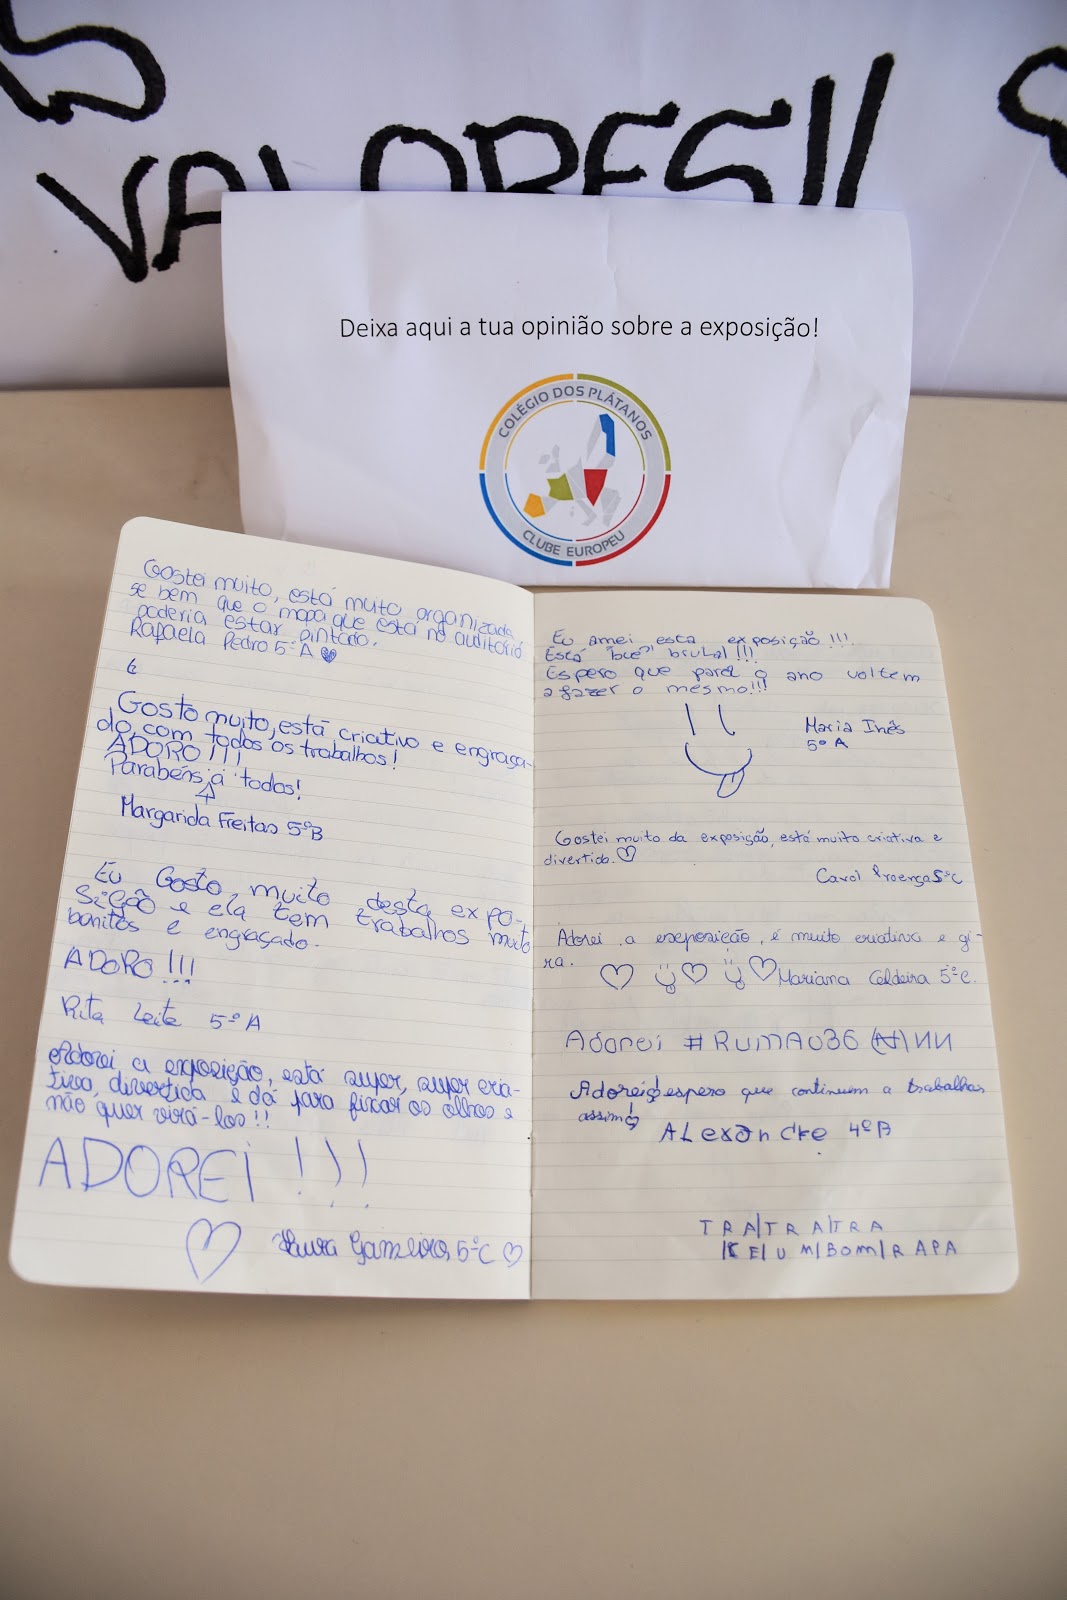 VALORES!!
Deixa aqui a tua opinião sobre a exposição!
COLÉGIO DOS PLÁTANOS
CLUBE EUROPEU
Gostei muito, está muito organizada
se bem que o mapa que está no auditório
poderia estar pintado.
Rafaela Pedro 5ºA
Gosto muito, está criativo e engraça-
do, com todos os trabalhos!
ADORO!!!
Parabéns á todos!
Margarida Freitas 5ºB
Eu Gosto muito desta expo-
sição e ela tem trabalhos muito
bonitos e engraçado.
ADORO!!!
Rita Leite 5ºA
Adorei a exposição, está super, super cria-
tiva, divertida e dá para fixar os olhos e
não quer virá-los!!
ADOREI!!!
Laura 5ºC
Eu amei esta exposição!!!
Está "bué" brutal!!!
Espero que para o ano voltem
a fazer o mesmo!!!
Maria Inês
5º A
Gostei muito da exposição, está muito criativa e
divertida.
Carol Proença 5ºC
Adorei a exeposição, é muito criativa e gi-
ra.
Mariana Caldeira 5ºC.
Adorei #RUMAO36
Adorei! espero que continuem a trabalhar
assim!
ALexandre 4ºB
TRA/TRA/TRA
KE/UM/BOM/RAPA